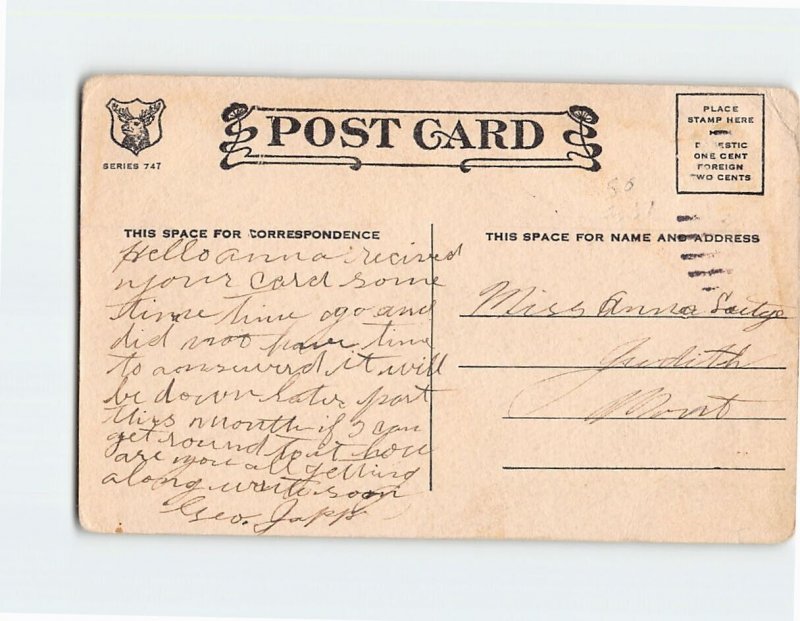 POST CARD
SERIES 747
PLACE
STAMP HERE
DOMESTIC
ONE CENT
FOREIGN
TWO CENTS
THIS SPACE FOR CORRESPONDENCE
Hello anna recived
your card some
time time ago and
did not have time
to answerd it will
be down later part
this month if I can
get round to it how
are you all getting
along write soon
Geo. Japp
THIS SPACE FOR NAME AND ADDRESS
Miss Anna
Judith
Mont